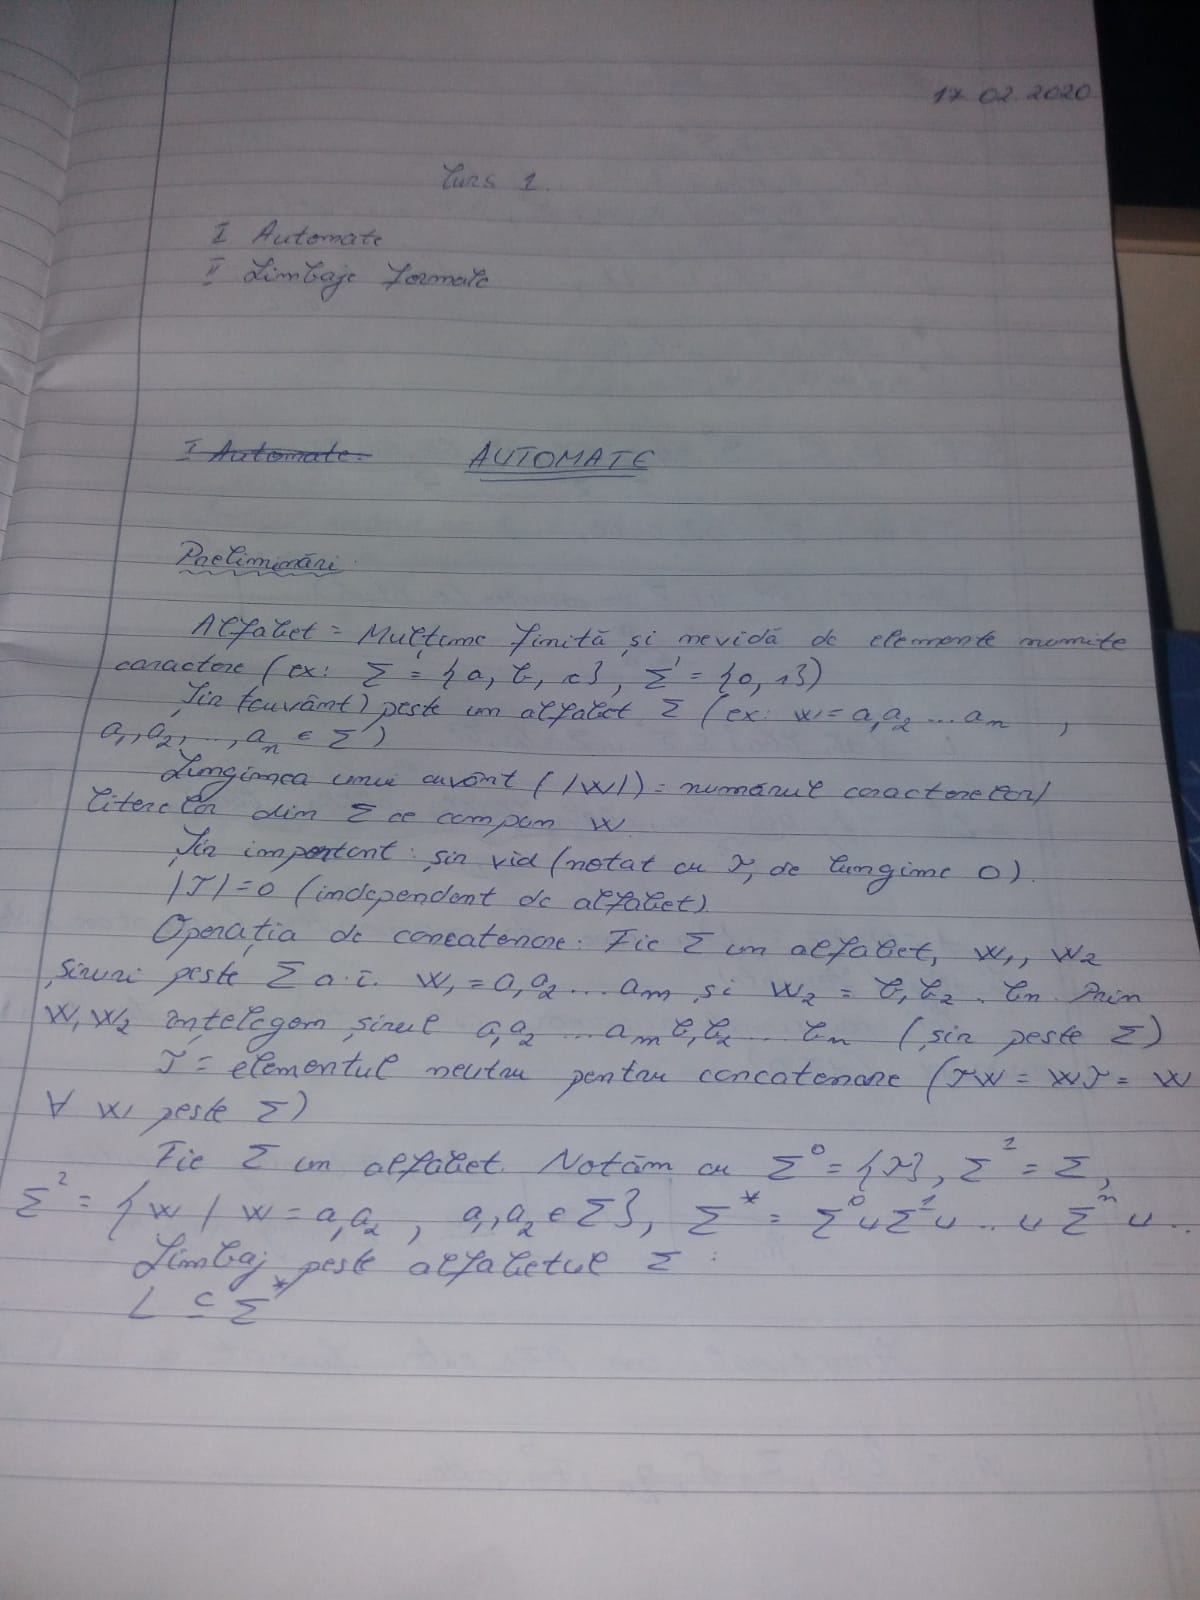 17.02.2020
Curs 1.
I Automate
II Limbaje formale
I Automate. AUTOMATE
Preliminări
Alfabet = Mulțime finită și nevidă de elemente numite
caractere (ex: Σ = {a, b, c}, Σ' = {0, 1})
Șir (cuvânt) peste un alfabet Σ (ex: w = a₁a₂ ... aₙ,
a₁, a₂, ..., aₙ ∈ Σ)
Lungimea unui cuvânt (|w|) = numărul caracterelor/
literelor din Σ ce compun w.
Șir important: șir vid (notat cu λ, de lungime 0).
|λ| = 0 (independent de alfabet).
Operația de concatenare: Fie Σ un alfabet, w₁, w₂
șiruri peste Σ a.î. w₁ = a₁a₂ ... aₘ și w₂ = b₁b₂ .. bₙ. Prin
w₁w₂ înțelegem șirul a₁a₂ ... aₘb₁b₂ ... bₙ (șir peste Σ)
λ = elementul neutru pentru concatenare (λw = wλ = w
∀ w peste Σ)
Fie Σ un alfabet. Notăm cu Σ⁰ = {λ}, Σ¹ = Σ,
Σ² = {w / w = a₁a₂, a₁, a₂ ∈ Σ}, Σ* = Σ⁰ ∪ Σ¹ ∪ .. ∪ Σⁿ ∪ ..
Limbaj peste alfabetul Σ:
L ⊆ Σ*